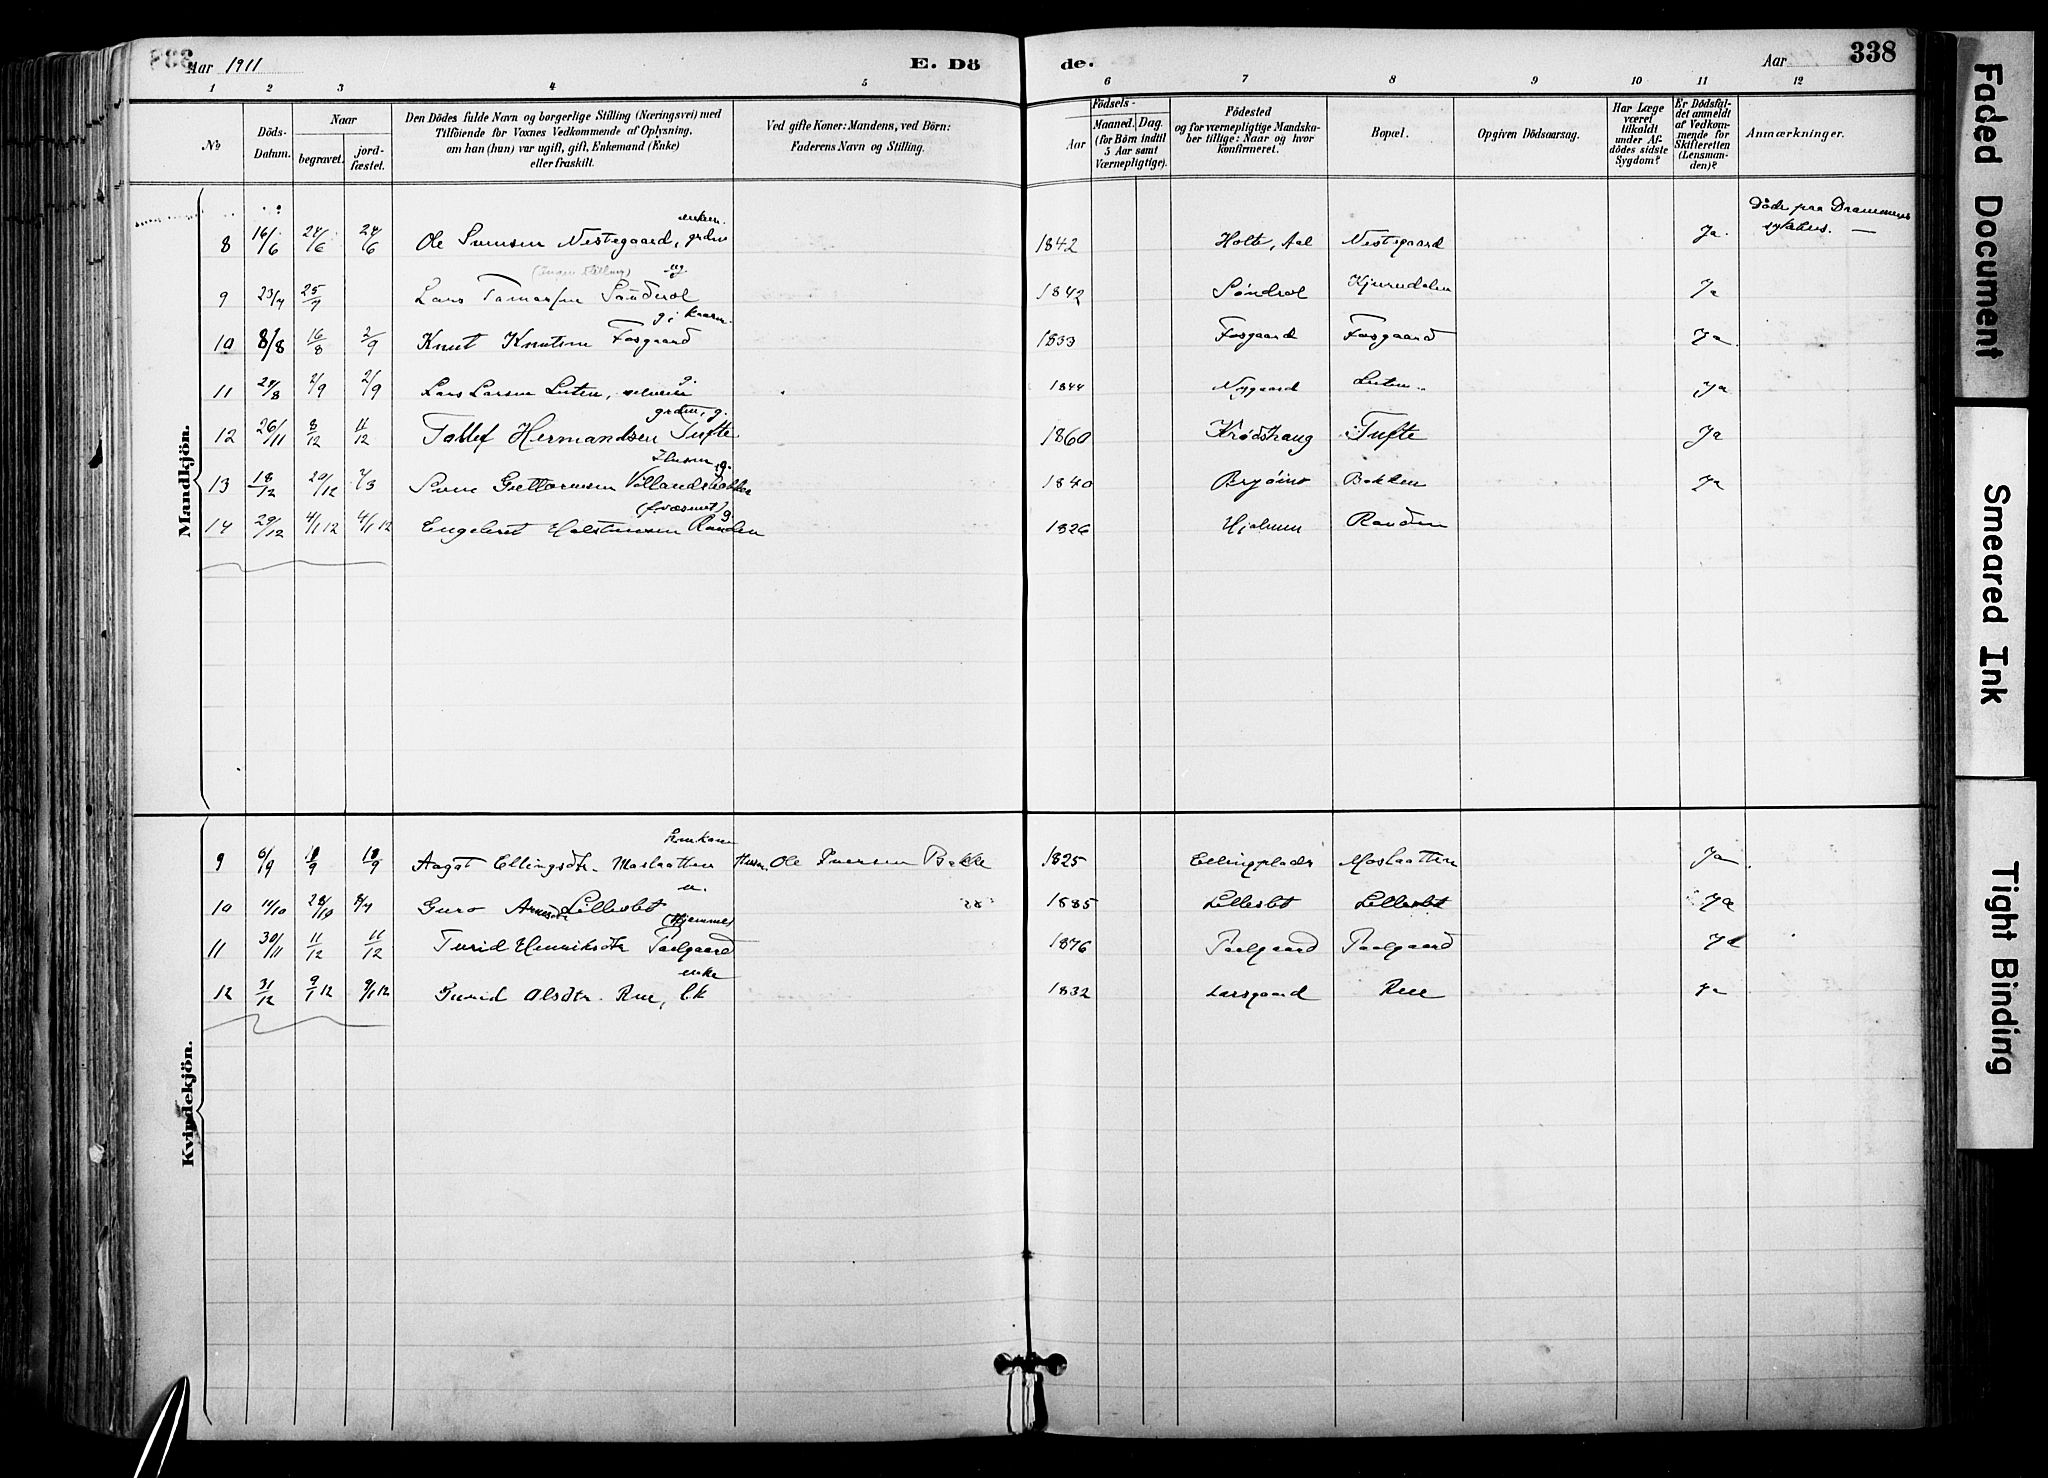 Aar 1911
E. Dö
de.
Aar
338
1 2 3 4 5 6 7 8 9 10 11 12
No
Döds-Datum.
Naar
begravet.
jord-fæstet.
Den Dödes fulde Navn og borgerlige Stilling (Næringsvei) med
Tilföiende for Voxnes Vedkommende af Oplysning,
om han (hun) var ugift, gift, Enkemand (Enke)
eller fraskilt.
Ved gifte Koner: Mandens, ved Börn:
Faderens Navn og Stilling.
Födsels-
Aar
Maaned. Dag.
(for Börn indtil
5 Aar samt
Værnepligtige).
Födested
og for værnepligtige Mandska-
ber tillige: Naar og hvor
konfirmeret.
Bopæl.
Opgiven Dödsaarsag.
Har Læge
været
tilkaldt
under Af-
dödes sidste
Sygdom?
Er Dödsfal-
det anmeldt
af Vedkom-
mende for
Skifteretten
(Lensman-
den)?
Anmærkninger.
Mandkjön.
enkem.
8 16/6 24/6 24/6 Ole Svensen Nestegaard, grdm 1842 Holte, Aal Nestegaard Ja. Døde paa Drammens sykehus.
(Ingen stilling) ug.
9 23/7 25/7 Lars Tomassen Sønderol 1842 Søndrol Ja
g; kaarm.
10 8/8 16/8 2/9 Knut Knutsen Fosgaard 1833 Fosgaard Fosgaard Ja
g.
11 24/8 2/9 2/9 Lars Larsen Luten, selveier 1844 Nygaard Luten Ja
grdm, g.
12 26/11 8/12 11/12 Tollef Hermandsen Tufte 1860 Krødshaug Tufte Ja
Husm, g.
13 18/12 20/12 7/3 Sven 1840 Bakken Ja
g.
14 29/12 4/1 12 4/1 12 Engebret Holstensen Randen 1826 Randen
Kvindekjön.
9 6/9 10/9 10/9 Aagot Ellingsdtr. Moslaatten Husm. Ole Iversen Bakke 1825 Ellingplads Moslaatten Ja
u.
10 14/10 28/10 Guro Arnesdtr Lilleslet 1885 Lilleslet Lilleslet Ja
(Hjemme)
11 30/11 11/12 11/12 Turid Henriksdtr Paalgaard 1876 Paalgaard Paalgaard Ja
enke
12 31/12 9/1 12 9/1 12 Gunid Olsdtr. Rue, f.k 1832 Larsgaard Rue Ja
Faded Document
Smeared Ink
Tight Binding